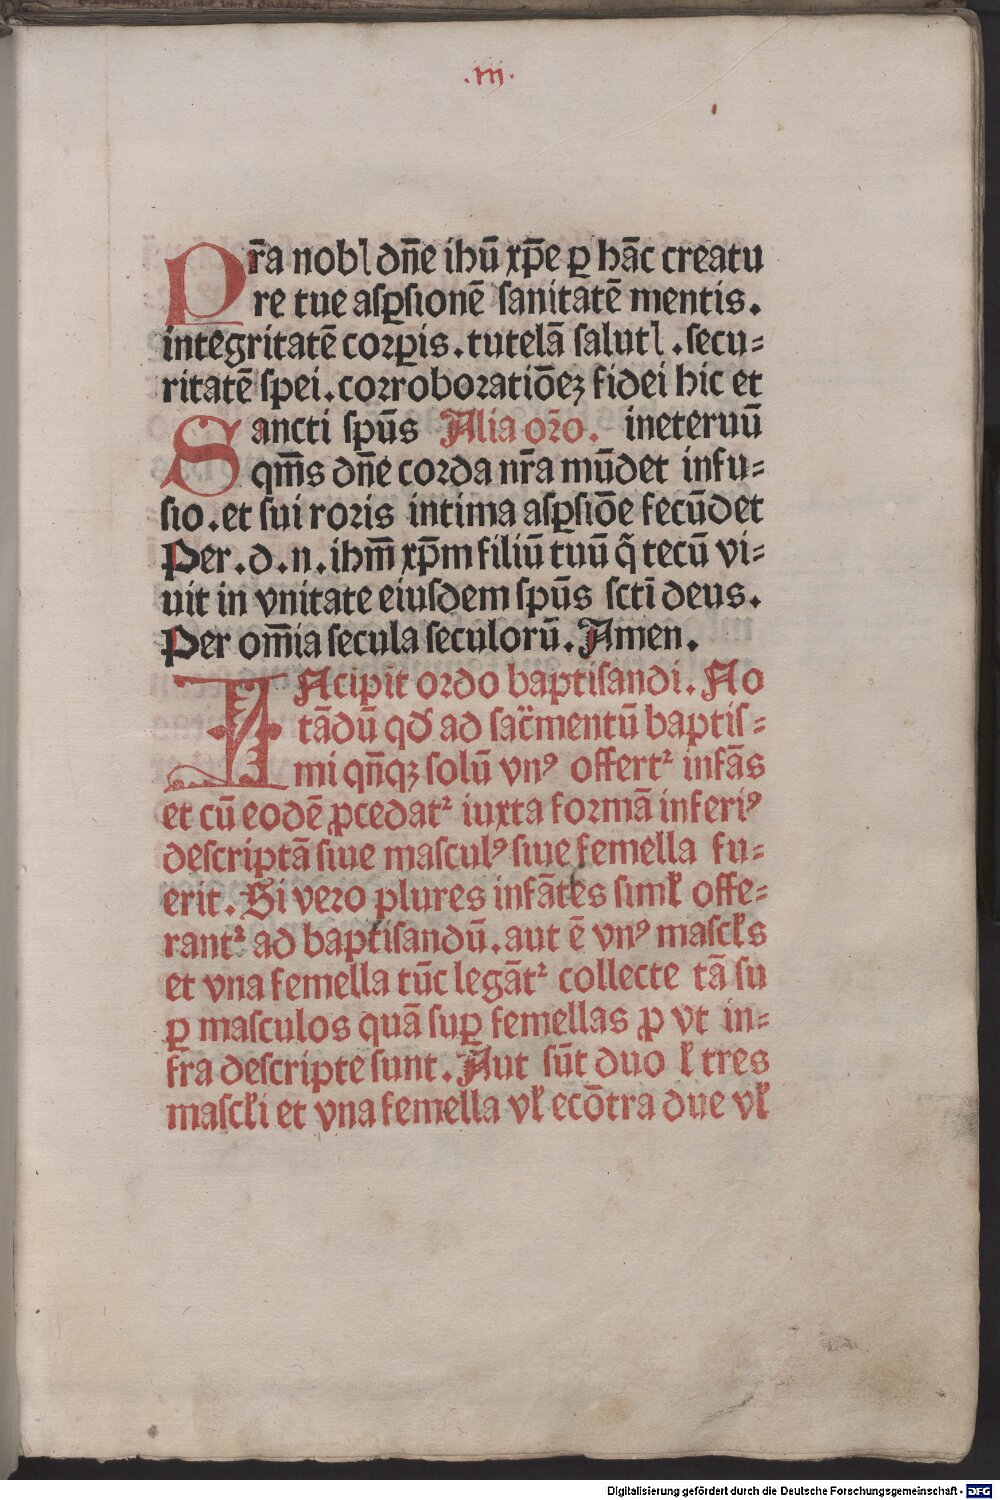 .iij.
Pr̄a nobꝉ dn̄e ihū xp̄e ꝑ hāc creatu
re tue aſꝑsionē ſanitatē mentis.
integritatē corꝑis. tutelā ſalutꝉ. secu⸗
ritatē ſpei. corroboratiōeꝫ fidei hic et
Sancti ſpūs Alia or̄o. ineternū
qm̄s dn̄e corda nr̄a mūdet infu⸗
ſio. et ſui roris intima aſꝑſiōe fecūdet
Per. d. n. ihm̄ xp̄m filiū tuū q̄ tecū vi⸗
uit in vnitate eiuſdem ſpūs ſctī deus.
Per om̄ia ſecula ſeculorū. Amen.
INcipit ordo baptiſandi. No
tādū qd̄ ad ſac̄mentū baptiſ⸗
mi qn̄qꝫ ſolū vnꝰ offertᷣ infās
et cū eodē ꝓcedatᷣ iuxta formā inferiꝰ
deſcriptā ſiue maſculꝰ ſiue femella fu⸗
erit. Si vero plures infātes ſimꝉ offe⸗
rantᷣ ad baptiſandū. aut ē vnꝰ maſcꝉs
et vna femella tūc legātᷣ collecte tā ſu
ꝑ maſculos quā ſuꝑ femellas ꝓ vt in⸗
fra deſcripte ſunt. Aut ſūt duo ꝉ tres
maſcꝉi et vna femella vꝉ ecōtra due vꝉ
Digitalisierung gefördert durch die Deutsche Forschungsgemeinschaft - DFG